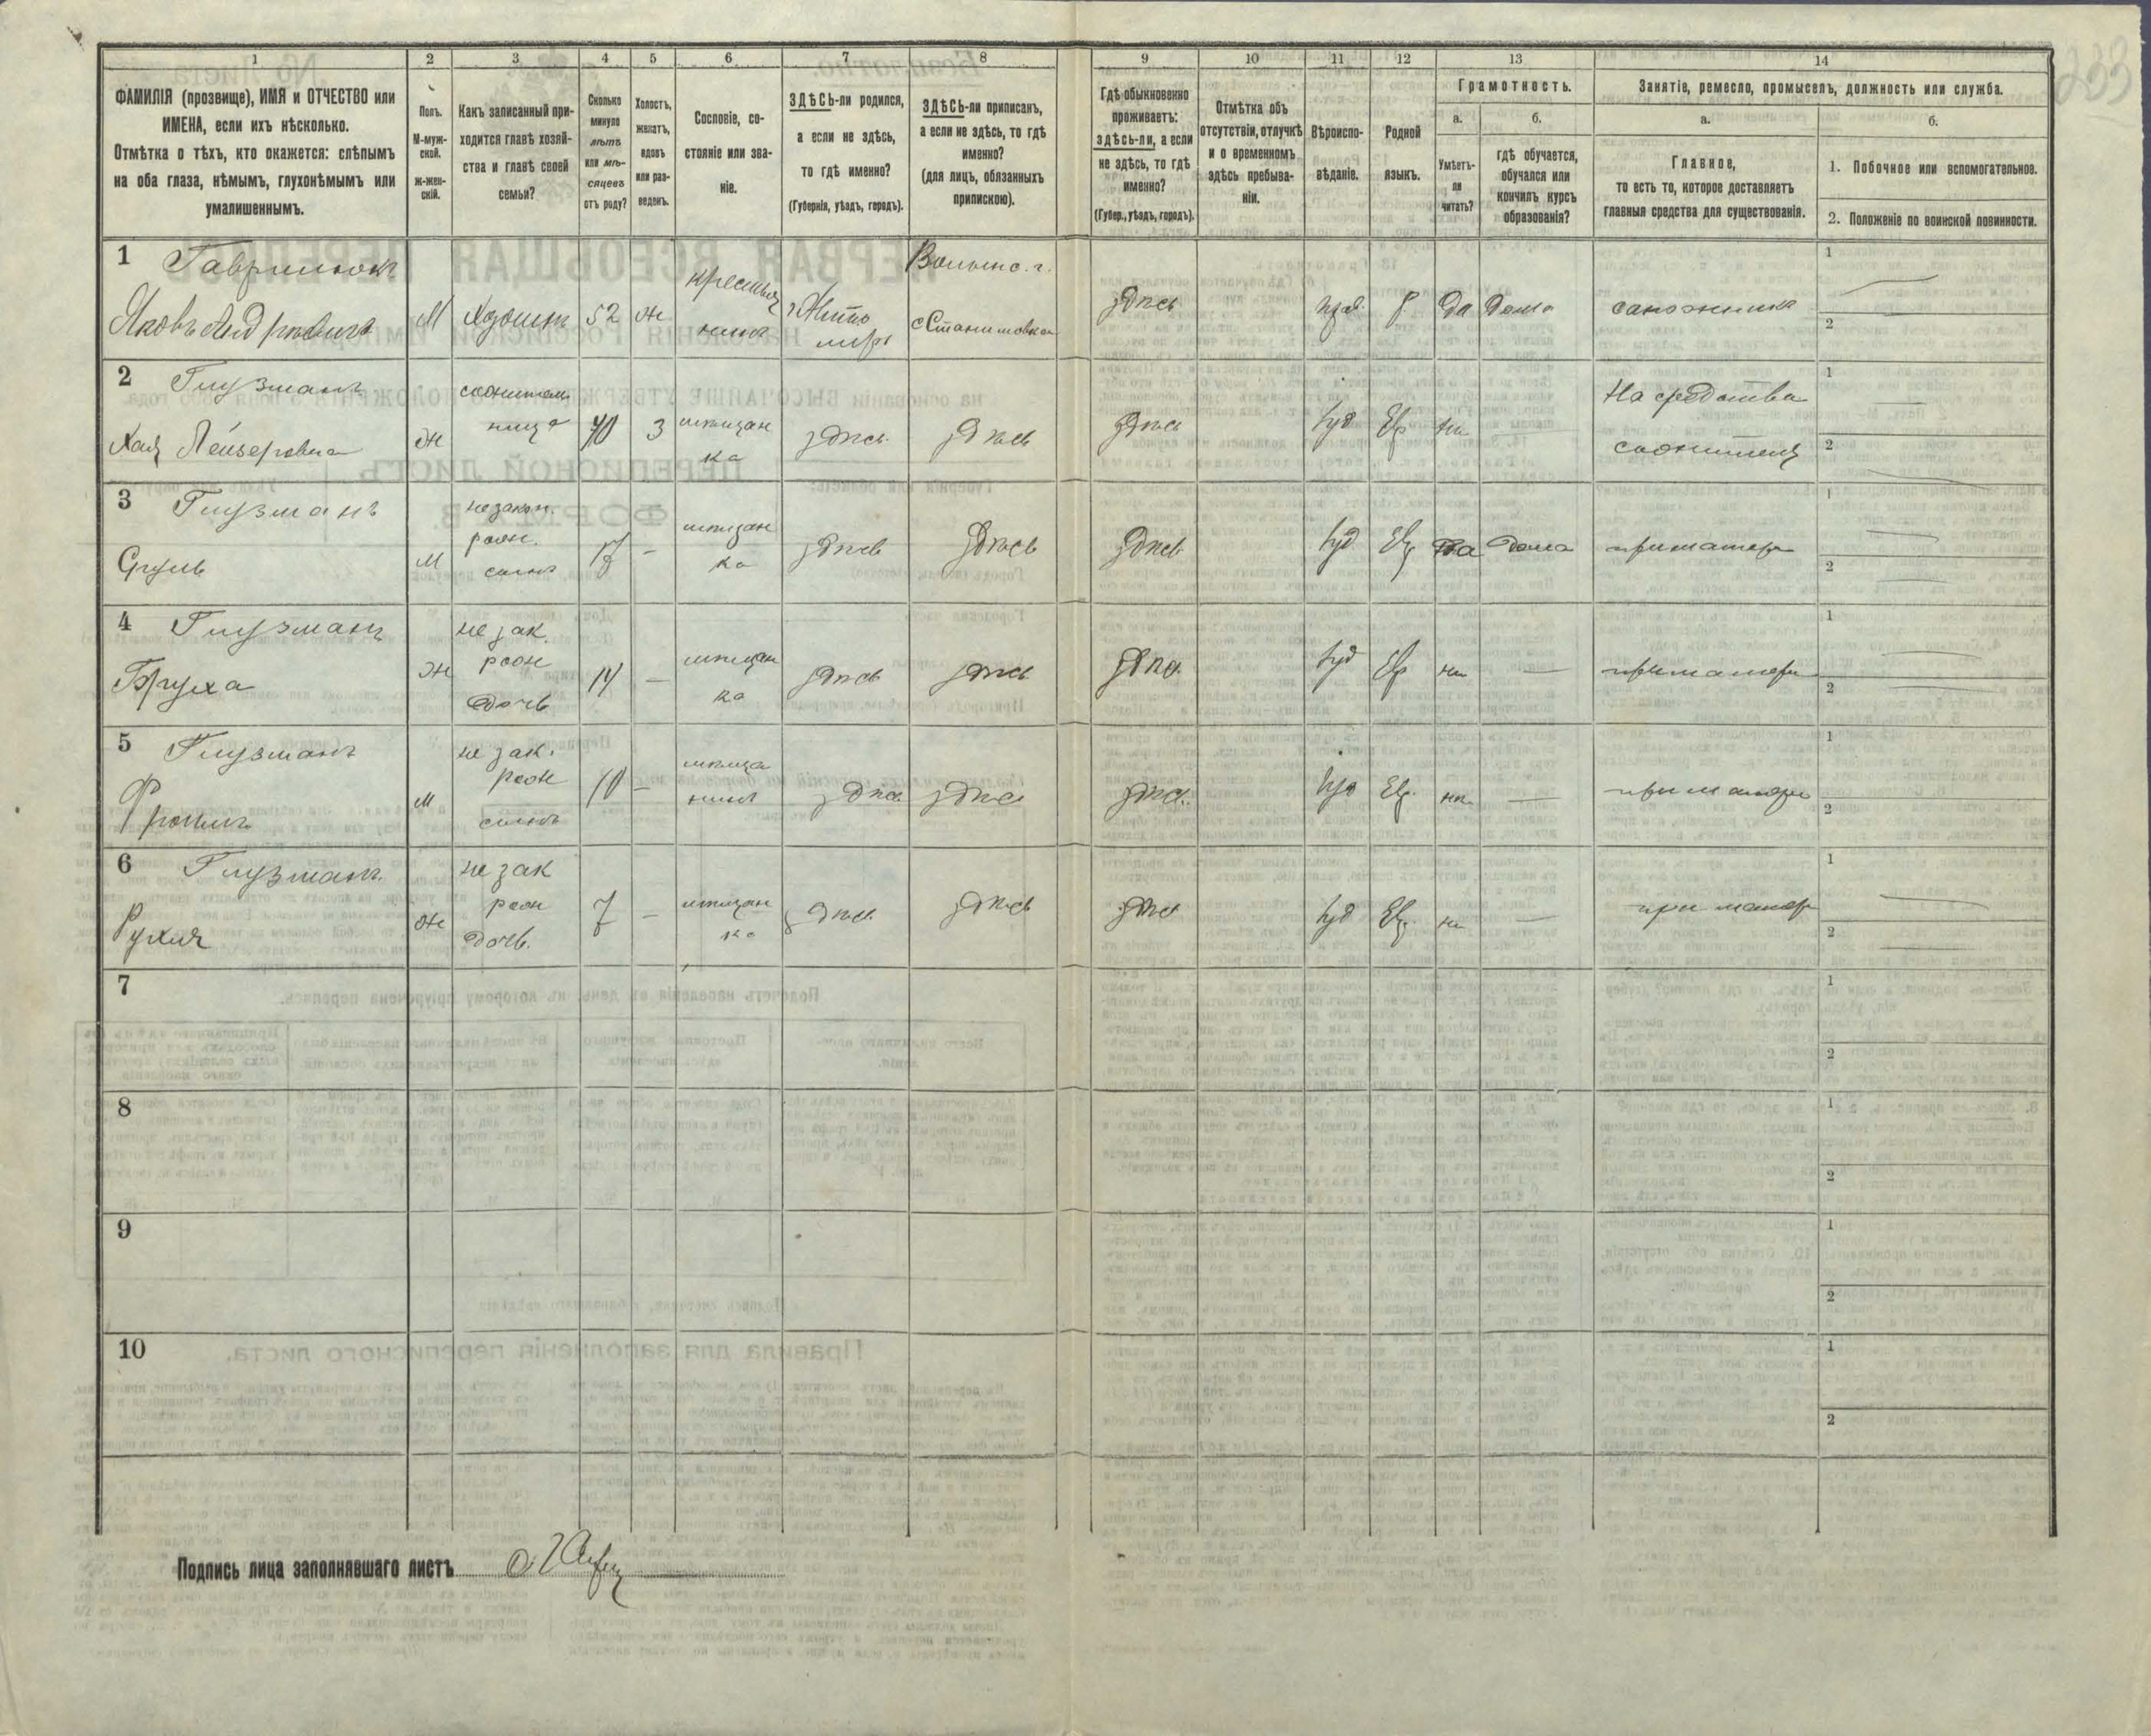 1 2 3 4 5 6 7 8 9 10 11 12 13 14
ФАМИЛІЯ (прозвище), ИМЯ и ОТЧЕСТВО или
ИМЕНА, если ихъ нѣсколько.
Отмѣтка о тѣхъ, кто окажется: слѣпымъ
на оба глаза, нѣмымъ, глухонѣмымъ или
умалишеннымъ.
Полъ.
М-муж-
ской.
ж-жен-
скій.
Какъ записанный при-
ходится главѣ хозяй-
ства и главѣ своей
семьи?
Сколько
минуло
лѣтъ
или мѣ-
сяцевъ
отъ роду?
Холостъ,
женатъ,
вдовъ
или раз-
веденъ.
Сословіе, со-
стояніе или зва-
ніе.
ЗДѢСЬ-ли родился,
а если не здѣсь,
то гдѣ именно?
(Губернія, уѣздъ, городъ).
ЗДѢСЬ-ли приписанъ,
а если не здѣсь, то гдѣ
именно?
(для лицъ, обязанныхъ
припискою).
Гдѣ обыкновенно
проживаетъ:
здѣсь-ли, а если
не здѣсь, то гдѣ
именно?
(Губер., уѣздъ, городъ).
Отмѣтка объ
отсутствіи, отлучкѣ
и о временномъ
здѣсь пребыва-
ніи.
Вѣроиспо-
вѣданіе.
Родной
языкъ.
Грамотность.
а.
Умѣетъ-
ли
читать?
б.
гдѣ обучается,
обучался или
кончилъ курсъ
образованія?
Занятіе, ремесло, промыселъ, должность или служба.
а.
Главное,
то есть то, которое доставляетъ
главныя средства для существованія.
б.
1. Побочное или вспомогательное.
2. Положеніе по воинской повинности.
233
1 Гаврилюкъ
Яковъ Андрѣевичъ М Хозяинъ 52 ж крестья
нинъ г Жито
миръ Волынс. г.
с Станишовка здѣсь прав. Р да дома сапожникъ 1
2
2 Глузманъ
Хая Лейзеровна Ж сожитель
ница 40 З мѣщан
ка здѣсь здѣсь здѣсь Іуд Евр нѣ На средства
сожителя 1
2
3 Глузманъ
Сруль М незакон.
рожж.
сынъ 17 - мѣщан
ка здѣсь здѣсь здѣсь Іуд Евр да дома при матери 1
2
4 Глузманъ
Бруха Ж не зак.
рожж
дочь 14 — мѣщан
ка здѣсь здѣсь здѣсь Іуд Евр нѣ — при матери 1
2
5 Глузманъ
Фроимъ М не зак.
рожж
сынъ 10 — мѣща
нинъ здѣсь здѣсь здѣсь Іуд Евр. нѣ — при матери 1
2
6 Глузманъ
Рухля Ж не зак
рожж
дочь. 7 — мѣщан
ка здѣсь здѣсь здѣсь Іуд Евр. нѣ — при матери 1
2
7 1
2
8 1
2
9 1
2
10 1
2
Подпись лица заполнявшаго листъ